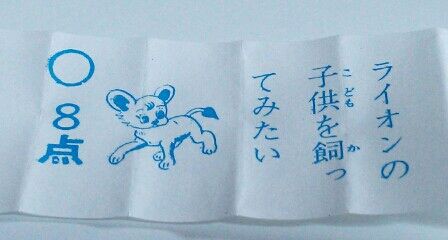 ライオンの
子供を飼っ
てみたい
こども
か
○
8点